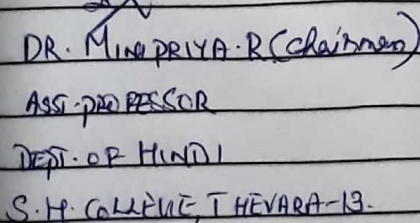 DR. MINI PRIYA. R (Chairman)
ASST. PROFESSOR
DEPT. OF HINDI
S. H. COLLEGE, THEVARA-13.